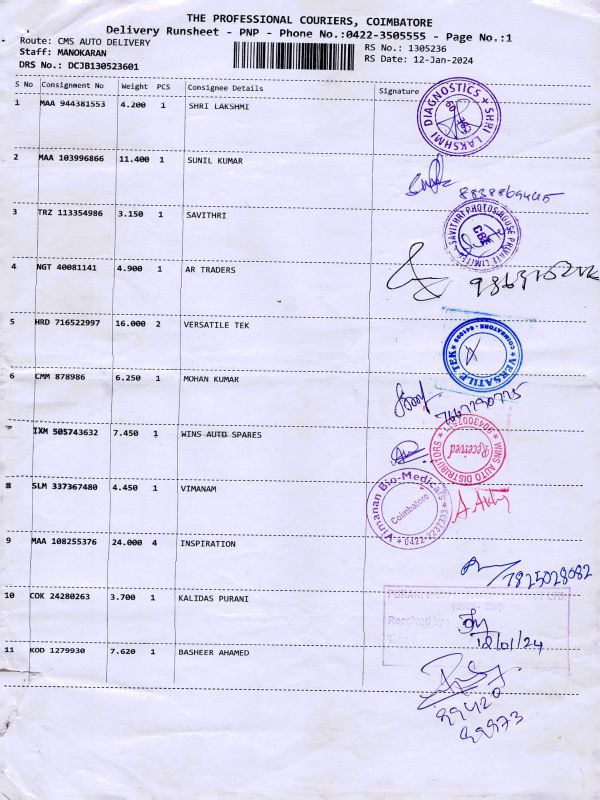 THE PROFESSIONAL COURIERS, COIMBATORE
Delivery Runsheet - PNP - Phone No.:0422-3505555 - Page No.:1
Route: CMS AUTO DELIVERY
RS No.: 1305236
Staff: MANOKARAN
RS Date: 12-Jan-2024
DRS No.: DCJB130523601
S No Consignment No Weight PCS Consignee Details Signature
1 MAA 944381553 4.200 1 SHRI LAKSHMI
DIAGNOSTICS ★ SHRI LAKSHMI
2 MAA 103996866 11.400 1 SUNIL KUMAR
3 TRZ 113354986 3.150 1 SAVITHRI
SAVITHRI PHOTOS HOUSE PRIVATE LIMITED
CBE
4 NGT 40081141 4.900 1 AR TRADERS
5 HRD 716522997 16.000 2 VERSATILE TEK
COIMBATORE
★ VERSATILE TEK ★
6 CMM 878986 6.250 1 MOHAN KUMAR
IXM 505743632 7.450 1 WINS AUTO SPARES
WINS AUTO DISTRIBUTORS
Received
8 SLM 337367480 4.450 1 VIMANAM
Vimanan Bio-Medicals
Coimbatore
9 MAA 108255376 24.000 4 INSPIRATION
7825028082
10 COK 24280263 3.700 1 KALIDAS PURANI
Received by
12/01/24
11 KOD 1279930 7.620 1 BASHEER AHAMED